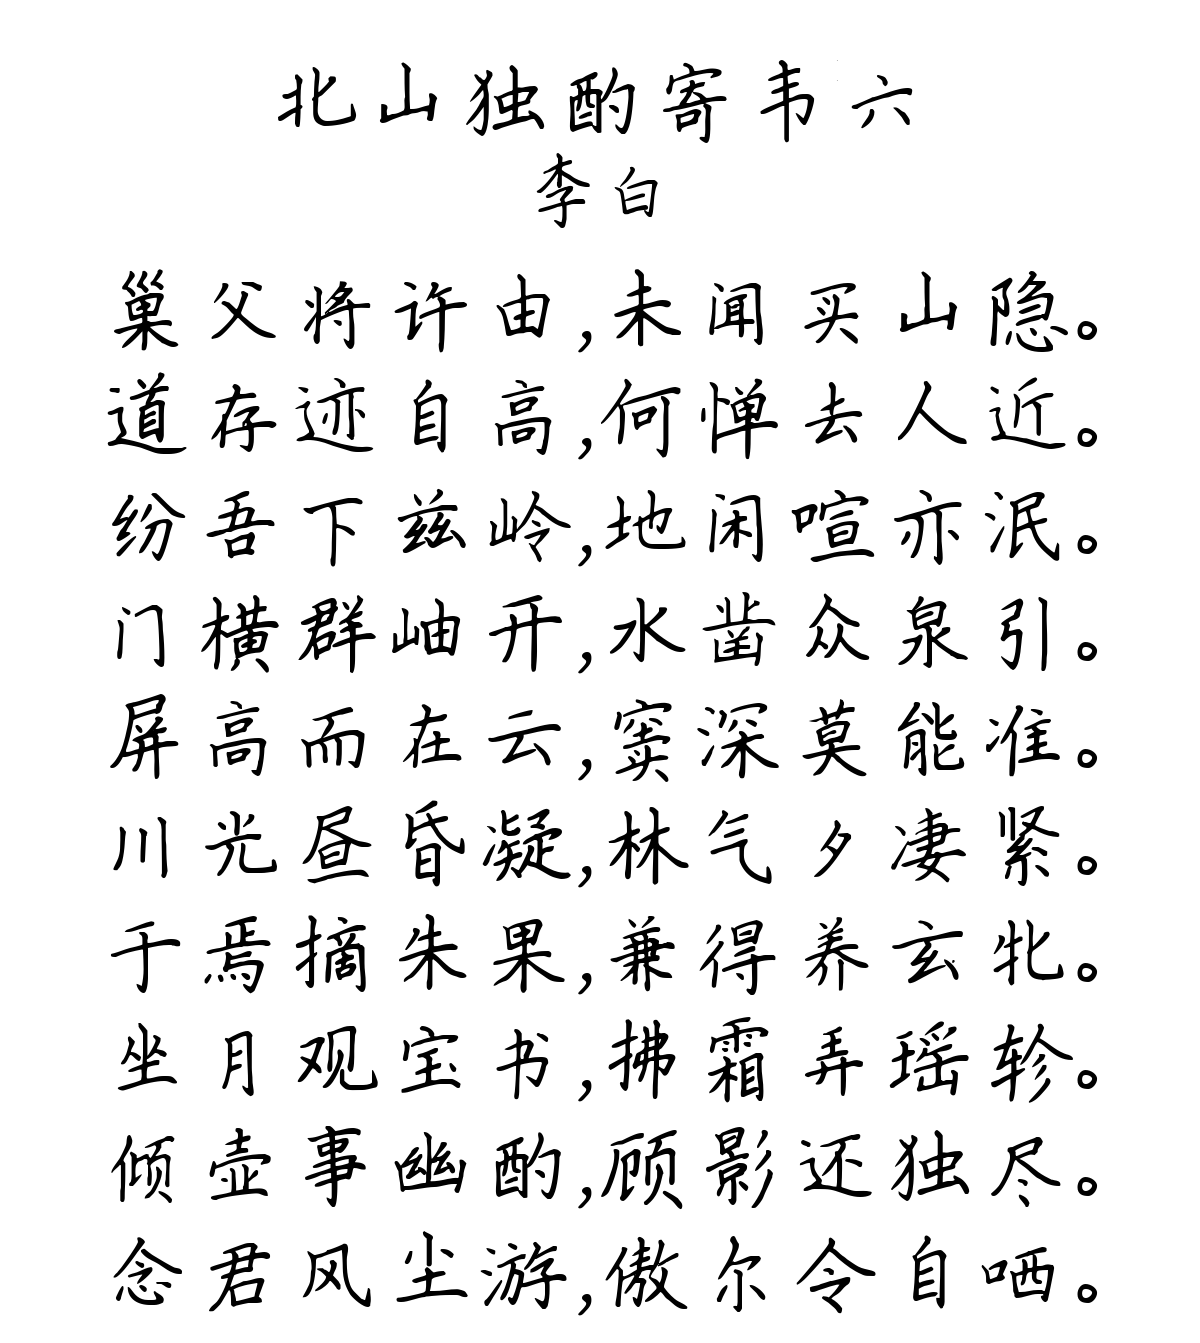 北山独酌寄韦六
李白
巢父将许由,未闻买山隐。
道存迹自高,何惮去人近。
纷吾下兹岭,地闲喧亦泯。
门横群岫开,水凿众泉引。
屏高而在云,窦深莫能准。
川光昼昏凝,林气夕凄紧。
于焉摘朱果,兼得养玄牝。
坐月观宝书,拂霜弄瑶轸。
倾壶事幽酌,顾影还独尽。
念君风尘游,傲尔令自哂。